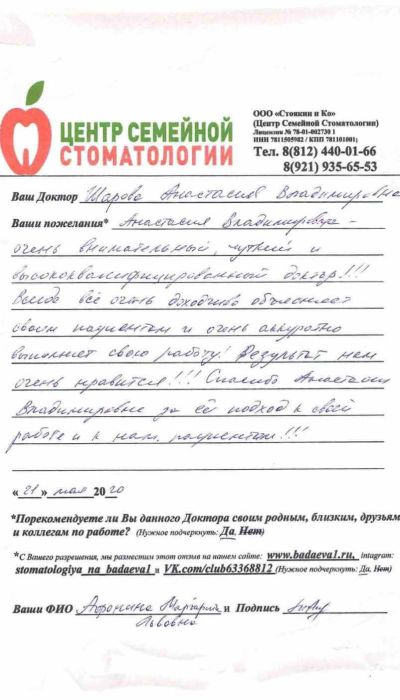 ЦЕНТР СЕМЕЙНОЙ
СТОМАТОЛОГИИ
ООО «Стоякин и Ко»
(Центр Семейной Стоматологии)
Лицензия № 78-01-002730 1
ИНН 7811505982 / КПП 781101001;
Тел. 8(812) 440-01-66
8(921) 935-65-53
Ваш Доктор Шарова Анастасия Владимировна
Ваши пожелания* Анастасия Владимировна -
очень внимательный, чуткий и
высококвалифицированный доктор!!!
Всегда всё очень доходчиво объясняет
своим пациентам и очень аккуратно
выполняет свою работу! Результат нам
очень нравится!!! Спасибо Анастасии
Владимировне за её подход к своей
работе и к нам, пациентам!!!
«21» мая 2020
*Порекомендуете ли Вы данного Доктора своим родным, близким, друзьям
и коллегам по работе? (Нужное подчеркнуть: Да, Нет)
*С Вашего разрешения, мы разместим этот отзыв на нашем сайте: www.badaeva1.ru, intagram:
stomatologiya_na_badaev1 и VK.com/club63368812 (Нужное подчеркнуть: Да, Нет)
Ваши ФИО Афонина Маргарита и Подпись
Львовна